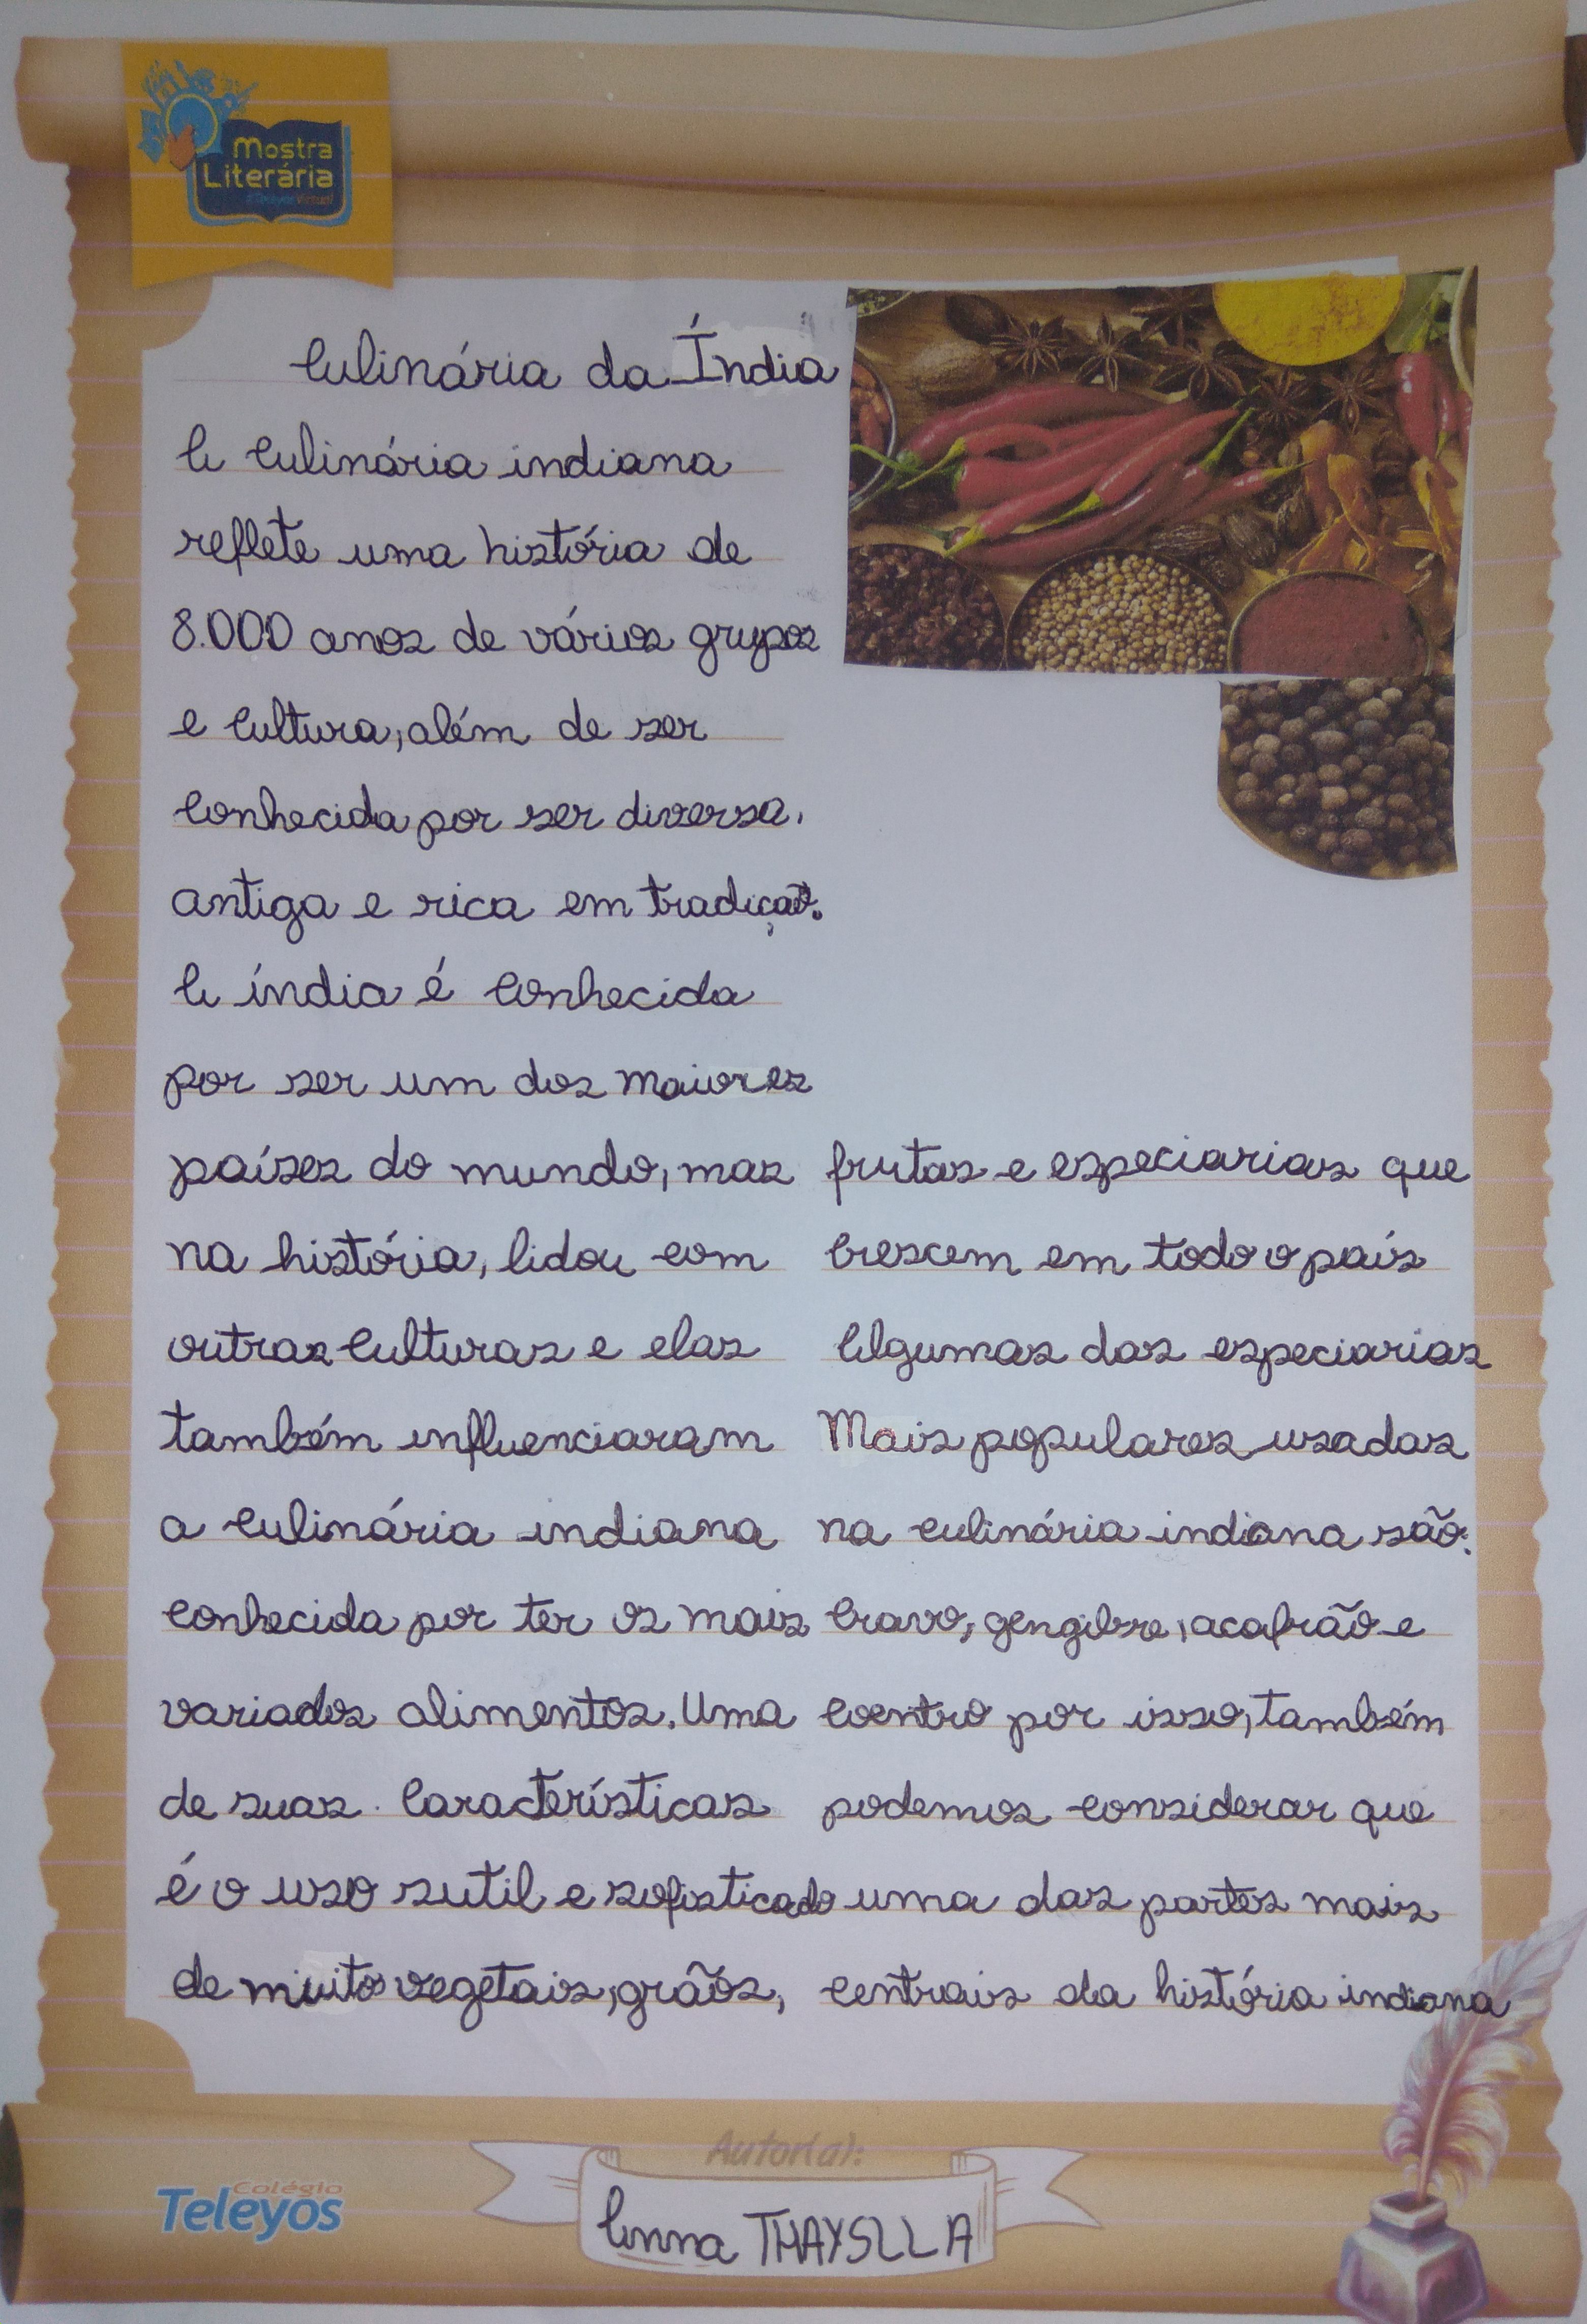 Mostra
Literária
#Teleyos Virtual
Culinária da Índia
A culinária indiana
reflete uma história de
8.000 anos de vários grupos
e cultura, além de ser
conhecida por ser diversa,
antiga e rica em tradição.
A índia é conhecida
por ser um dos maiores
países do mundo, mas
na história, lidou com
outras culturas e elas
também influenciaram
a culinária indiana
conhecida por ter os mais
variados alimentos. Uma
de suas características
é o uso sutil e sofisticado
de muitos vegetais, grãos,
frutas e especiarias que
crescem em todo o país
Algumas das especiarias
Mais populares usadas
na culinária indiana são:
cravo, gengibre, acafrão e
coentro por isso, também
podemos considerar que
uma das partes mais
centrais da história indiana
Autor(a):
Colégio
Teleyos
Anna THAYSLLA